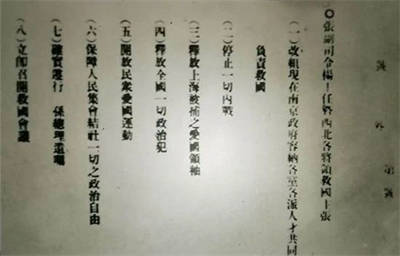 ◎張副司令楊主任暨西北各將領救國主張
(一)改組現在南京政府容納各黨各派人才共同
負責救國
(二)停止一切內戰
(三)釋放上海被捕之愛國領袖
(四)釋放全國一切政治犯
(五)開放民衆愛國運動
(六)保障人民集會結社一切之政治自由
(七)確實遵行 孫總理遺囑
(八)立即召開救國會議